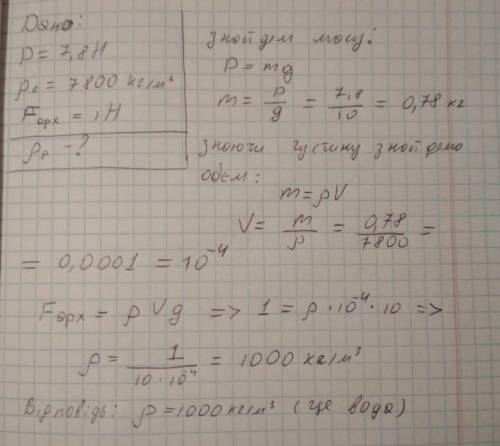 Дано:
P = 7,8Н
ρс = 7800 кг/м³
Fарх = 1Н
ρр - ?
знайдем масу:
P = mg
m = P/g = 7,8/10 = 0,78 кг
знаючи густину знайдемо
обєм:
m = ρV
V = m/ρ = 0,78/7800 =
= 0,0001 = 10⁻⁴
Fарх = ρVg => 1 = ρ · 10⁻⁴ · 10 =>
ρ = 1/(10 · 10⁻⁴) = 1000 кг/м³
Відповідь: ρ = 1000 кг/м³ (це вода)